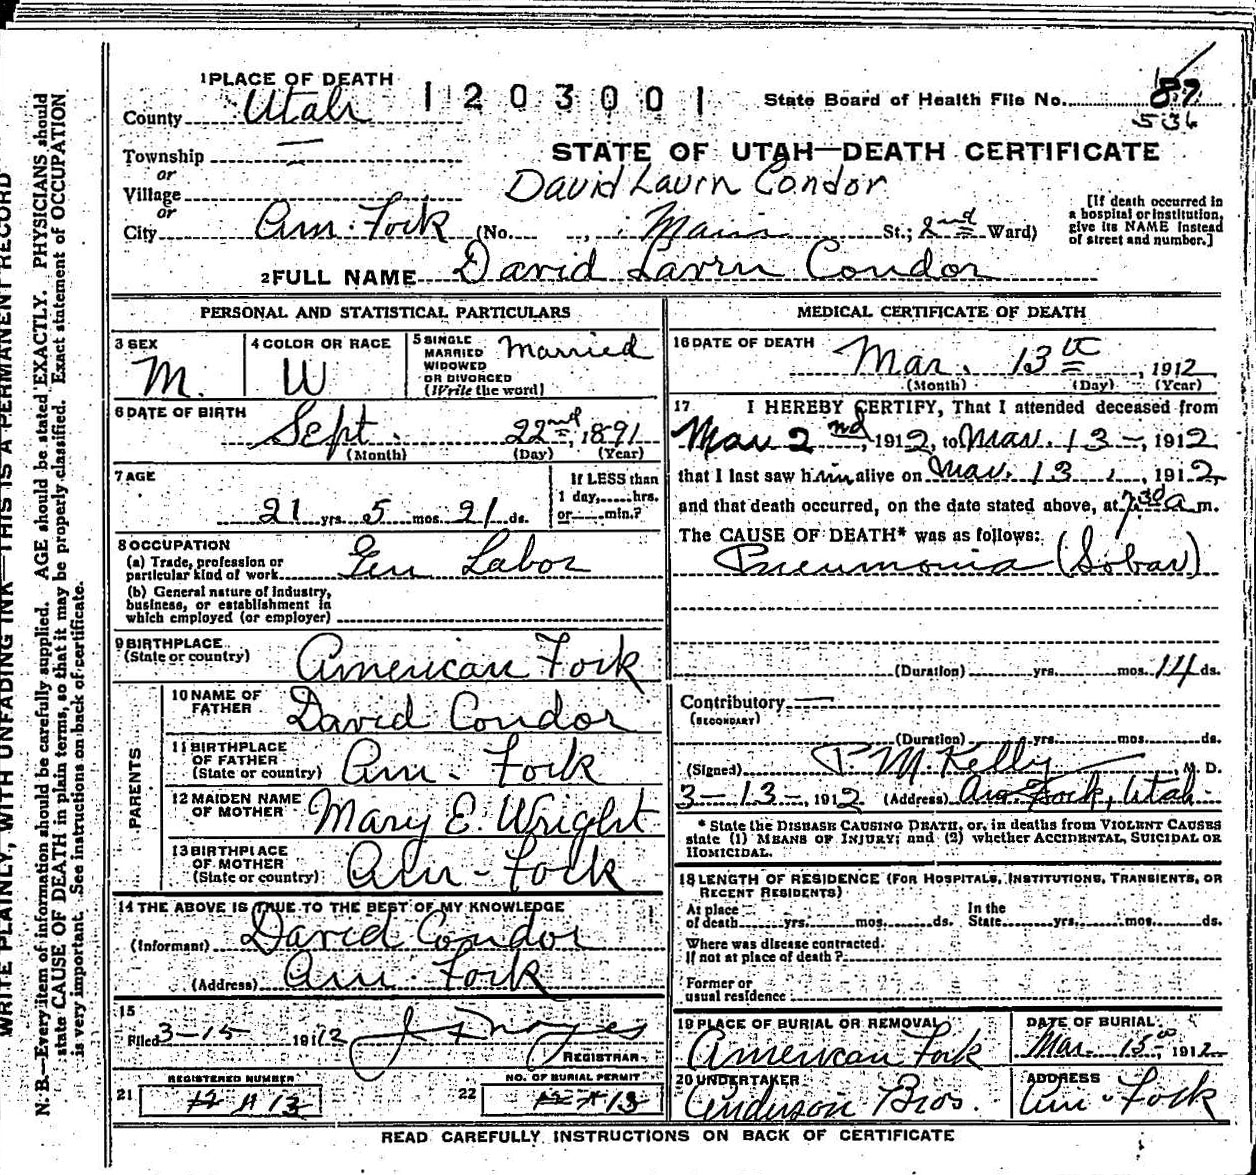 WRITE PLAINLY, WITH UNFADING INK—THIS IS A PERMANENT RECORD
N. B.—Every item of information should be carefully supplied. AGE should be stated EXACTLY. PHYSICIANS should
state CAUSE OF DEATH in plain terms, so that it may be properly classified. Exact statement of OCCUPATION
is very important. See instructions on back of certificate.
1 PLACE OF DEATH
1203001
State Board of Health File No. 87
536
County Utah
Township
or
Village
or
City Am. Fork (No. , Main St.; 2nd Ward)
STATE OF UTAH—DEATH CERTIFICATE
David Lavrn Condor
[If death occurred in
a hospital or institution,
give its NAME instead
of street and number.]
2 FULL NAME David Lavrn Condor
PERSONAL AND STATISTICAL PARTICULARS
3 SEX
M.
4 COLOR OR RACE
W
5 SINGLE
MARRIED
WIDOWED
OR DIVORCED
(Write the word)
Married
6 DATE OF BIRTH
Sept. 22nd, 1891
(Month) (Day) (Year)
7 AGE
21 yrs. 5 mos. 21 ds.
If LESS than
1 day,......hrs.
or......min.?
8 OCCUPATION
(a) Trade, profession or
particular kind of work Gen Labor
(b) General nature of industry,
business, or establishment in
which employed (or employer)
9 BIRTHPLACE
(State or country) American Fork
PARENTS
10 NAME OF
FATHER David Condor
11 BIRTHPLACE
OF FATHER
(State or country) Am. Fork
12 MAIDEN NAME
OF MOTHER Mary E. Wright
13 BIRTHPLACE
OF MOTHER
(State or country) Am - Fork
14 THE ABOVE IS TRUE TO THE BEST OF MY KNOWLEDGE
(Informant) David Condor
(Address) Am. Fork
15
Filed 3-15 1912
REGISTRAR
REGISTERED NUMBER
21 13
NO. OF BURIAL PERMIT
22 13
MEDICAL CERTIFICATE OF DEATH
16 DATE OF DEATH
Mar. 13th, 1912
(Month) (Day) (Year)
17 I HEREBY CERTIFY, That I attended deceased from
Mar 2nd, 1912, to Mar. 13-, 1912
that I last saw him alive on Mar. 13, 1912,
and that death occurred, on the date stated above, at 7.30 a m.
The CAUSE OF DEATH* was as follows:
Pneumonia (Lobar)
(Duration) yrs. mos. 14 ds.
Contributory —
(SECONDARY)
(Duration) yrs. mos. ds.
(Signed) P. M. Kelly M. D.
3-13-, 1912 (Address) Am. Fork, Utah.
* State the DISEASE CAUSING DEATH, or, in deaths from VIOLENT CAUSES
state (1) MEANS OF INJURY; and (2) whether ACCIDENTAL, SUICIDAL OR
HOMICIDAL.
18 LENGTH OF RESIDENCE (FOR HOSPITALS, INSTITUTIONS, TRANSIENTS, OR
RECENT RESIDENTS)
At place
of death yrs. mos. ds.
In the
State yrs. mos. ds.
Where was disease contracted.
If not at place of death?
Former or
usual residence
19 PLACE OF BURIAL OR REMOVAL
American Fork
DATE OF BURIAL
Mar. 15, 1912
20 UNDERTAKER
Anderson Bros.
ADDRESS
Am. Fork
READ CAREFULLY INSTRUCTIONS ON BACK OF CERTIFICATE